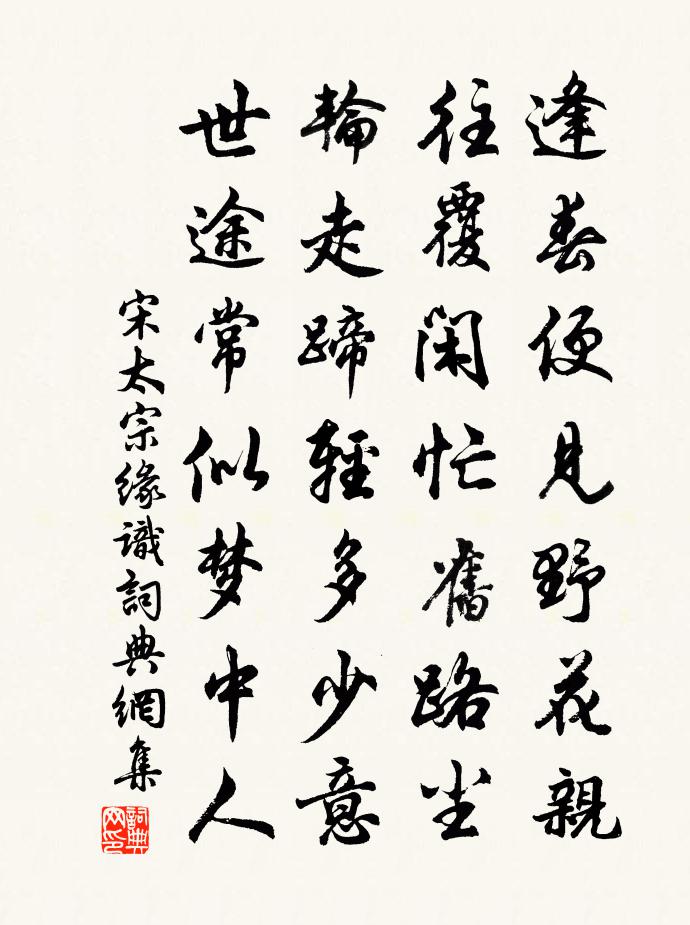 逢春便見野花親
往覆閑忙舊路尘
輪走蹄輕多少意
世途常似梦中人
宋太宗緣識詞典網集
詞典网印